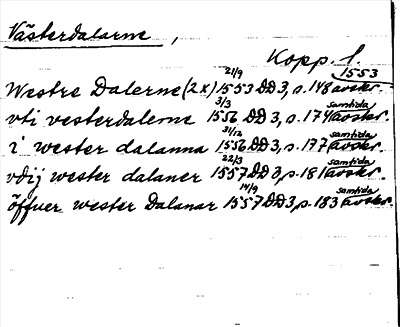 Västerdalarne,
Kopp. l.
Westre Dalerne (2x) 21/9 1553 DD 3, s. 148 1553 avskr.
vti vesterdalerne 3/3 1556 DD 3, s. 174 samtida avskr.
i wester dalanna 31/12 1556 DD 3, s. 177 samtida avskr.
vdij wester dalaner 22/3 1557 DD 3, s. 181 samtida avskr.
öffuer wester Dalanar 14/9 1557 DD 3, s. 183 samtida avskr.